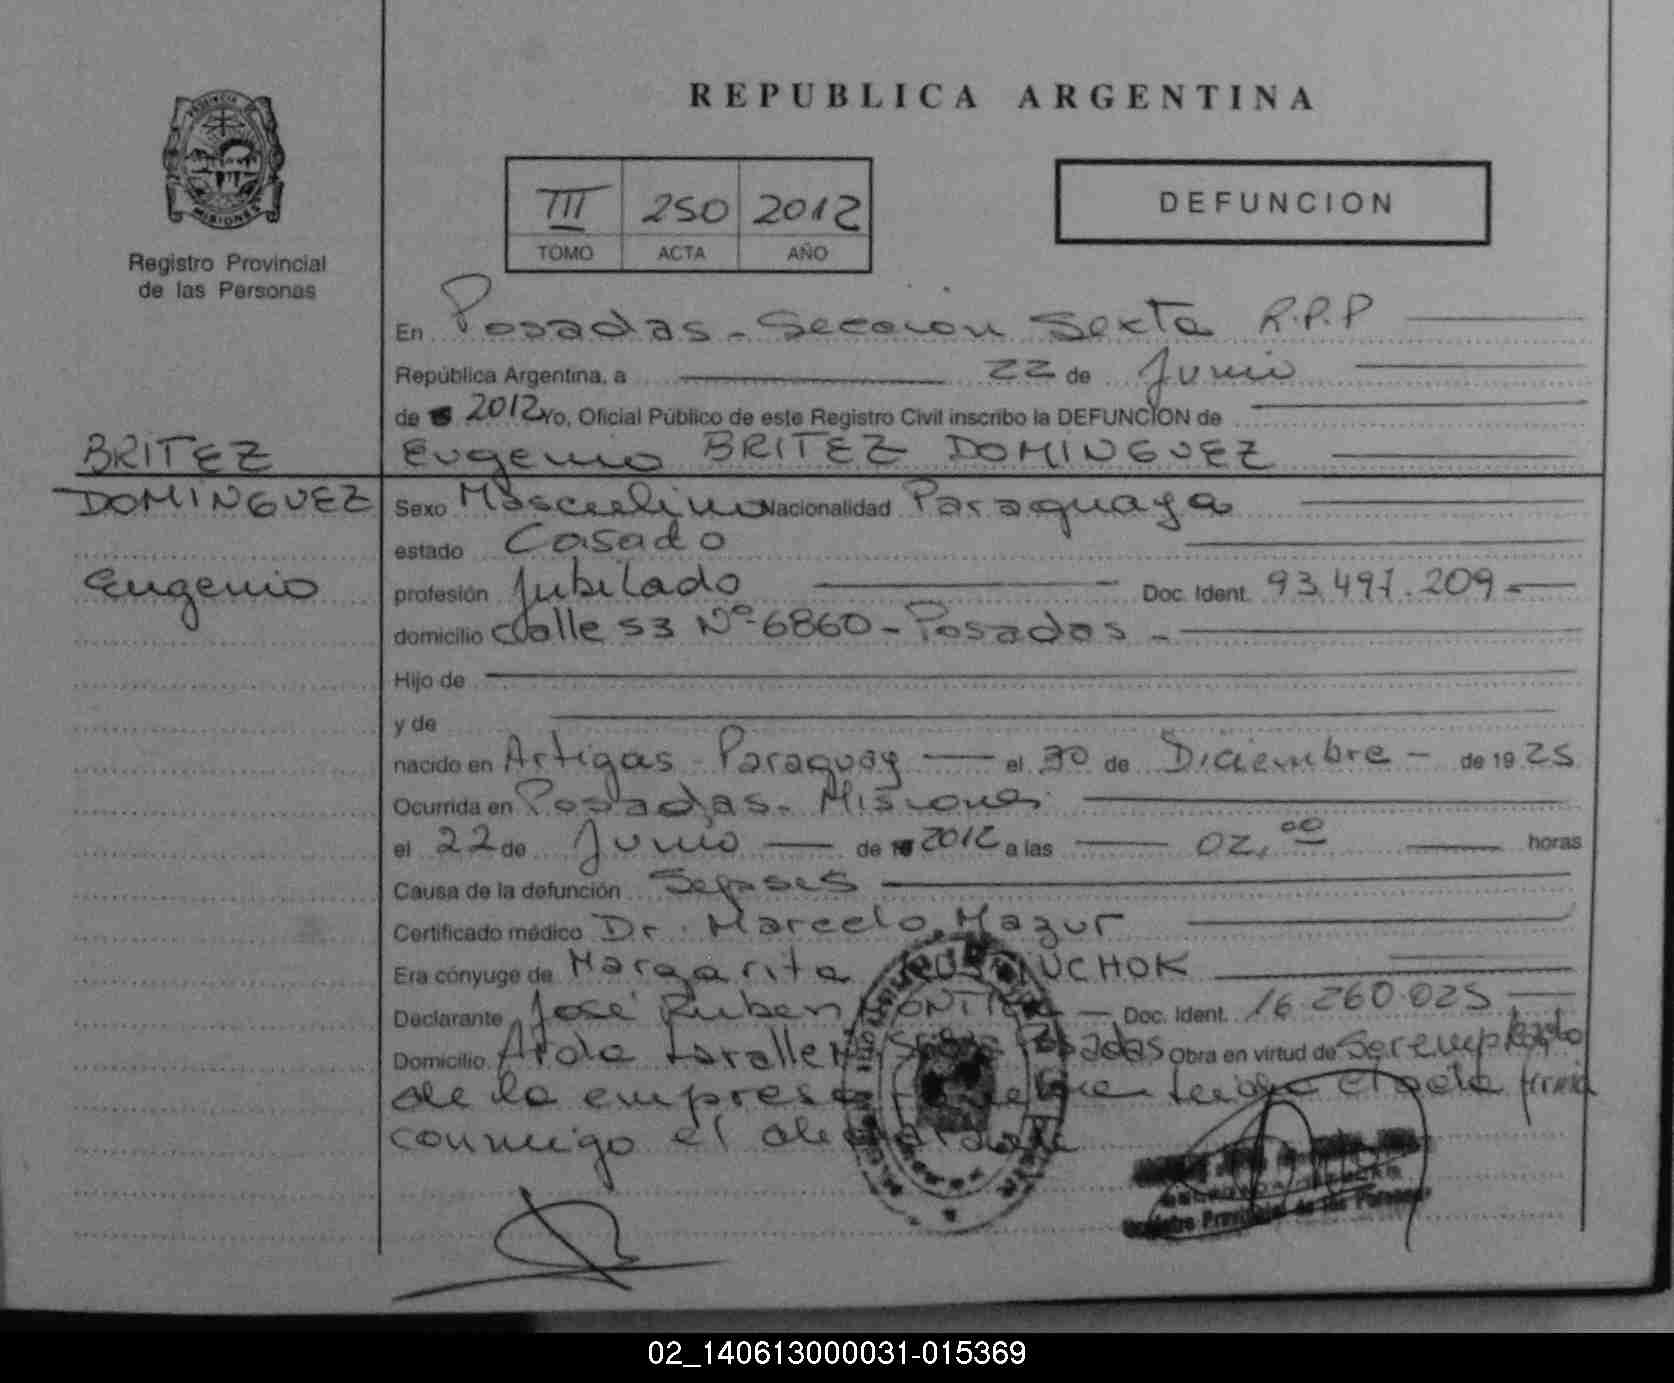 REPUBLICA ARGENTINA
PROVINCIA DE
MISIONES
Registro Provincial
de las Personas
III 250 2012
TOMO ACTA AÑO
DEFUNCION
En Posadas - Sección Sexta R.P.P
República Argentina, a 22 de Junio
de 2012 Yo, Oficial Público de este Registro Civil inscribo la DEFUNCION de
BRITEZ
DOMINGUEZ
Eugenio
Eugenio BRITEZ DOMINGUEZ
Sexo Masculino Nacionalidad Paraguaya
estado Casado
profesión Jubilado Doc. Ident. 93.491.209-
domicilio Calle 53 Nº 6860 - Posadas -
Hijo de
y de
nacido en Artigas - Paraguay el 30 de Diciembre - de 1925
Ocurrida en Posadas - Misiones
el 22 de Junio de 2012 a las 02,00 horas
Causa de la defunción Sepses
Certificado médico Dr. Marcelo Mazur
Era cónyuge de Margarita
Declarante José Ruben Doc. Ident. 16.260.025
Domicilio Posadas Obra en virtud de Ser empleado
de la empresa acta firma
conmigo el declarante
Registro Provincial de las Personas
02_140613000031-015369